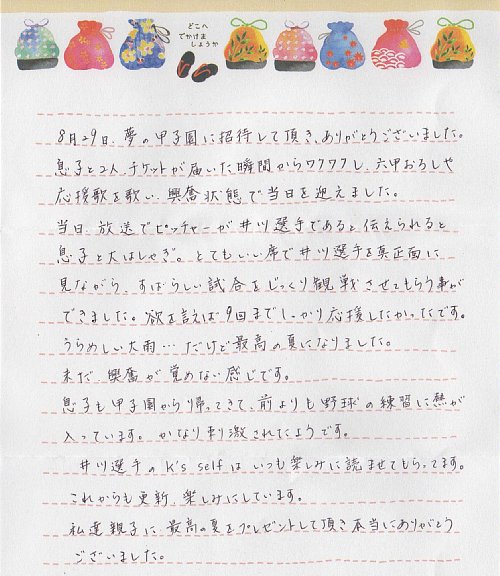 どこへ
でかけま
しょうか
8月29日、夢の甲子園に招待して頂き、ありがとうございました。
息子と2人、チケットが届いた瞬間からワクワクし、六甲おろしや
応援歌を歌い、興奮状態で当日を迎えました。
当日、放送でピッチャーが井川選手であると伝えられると
息子と大はしゃぎ。とてもいい席で井川選手を真正面に
見ながら、すばらしい試合をじっくり観戦させてもらう事が
できました。欲を言えば9回までしっかり応援したかったです。
うらめしい大雨…だけど最高の夏になりました。
未だ、興奮が覚めない感じです。
息子も甲子園から帰ってきて、前よりも野球の練習に熱が
入っています。かなり刺激されたようです。
井川選手のK's selfはいつも楽しみに読ませてもらってます。
これからも更新、楽しみにしています。
私達親子に、最高の夏をプレゼントして頂き本当にありがとう
ございました。